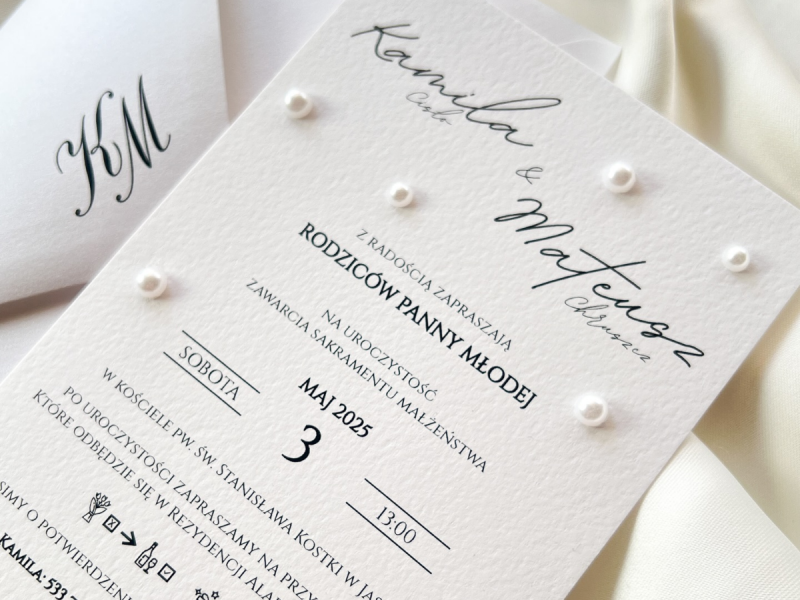 KM
Kamila
&
Mateusz
Chruszcz
Z RADOŚCIĄ ZAPRASZAJĄ
RODZICÓW PANNY MŁODEJ
NA UROCZYSTOŚĆ
ZAWARCIA SAKRAMENTU MAŁŻEŃSTWA
SOBOTA
MAJ 2025
3
13:00
W KOŚCIELE PW. ŚW. STANISŁAWA KOSTKI W JAS
PO UROCZYSTOŚCI ZAPRASZAMY NA PRZY
KTÓRE ODBĘDZIE SIĘ W REZYDENCJI ALA
SIMY O POTWIERDZENI
KAMILA: 533